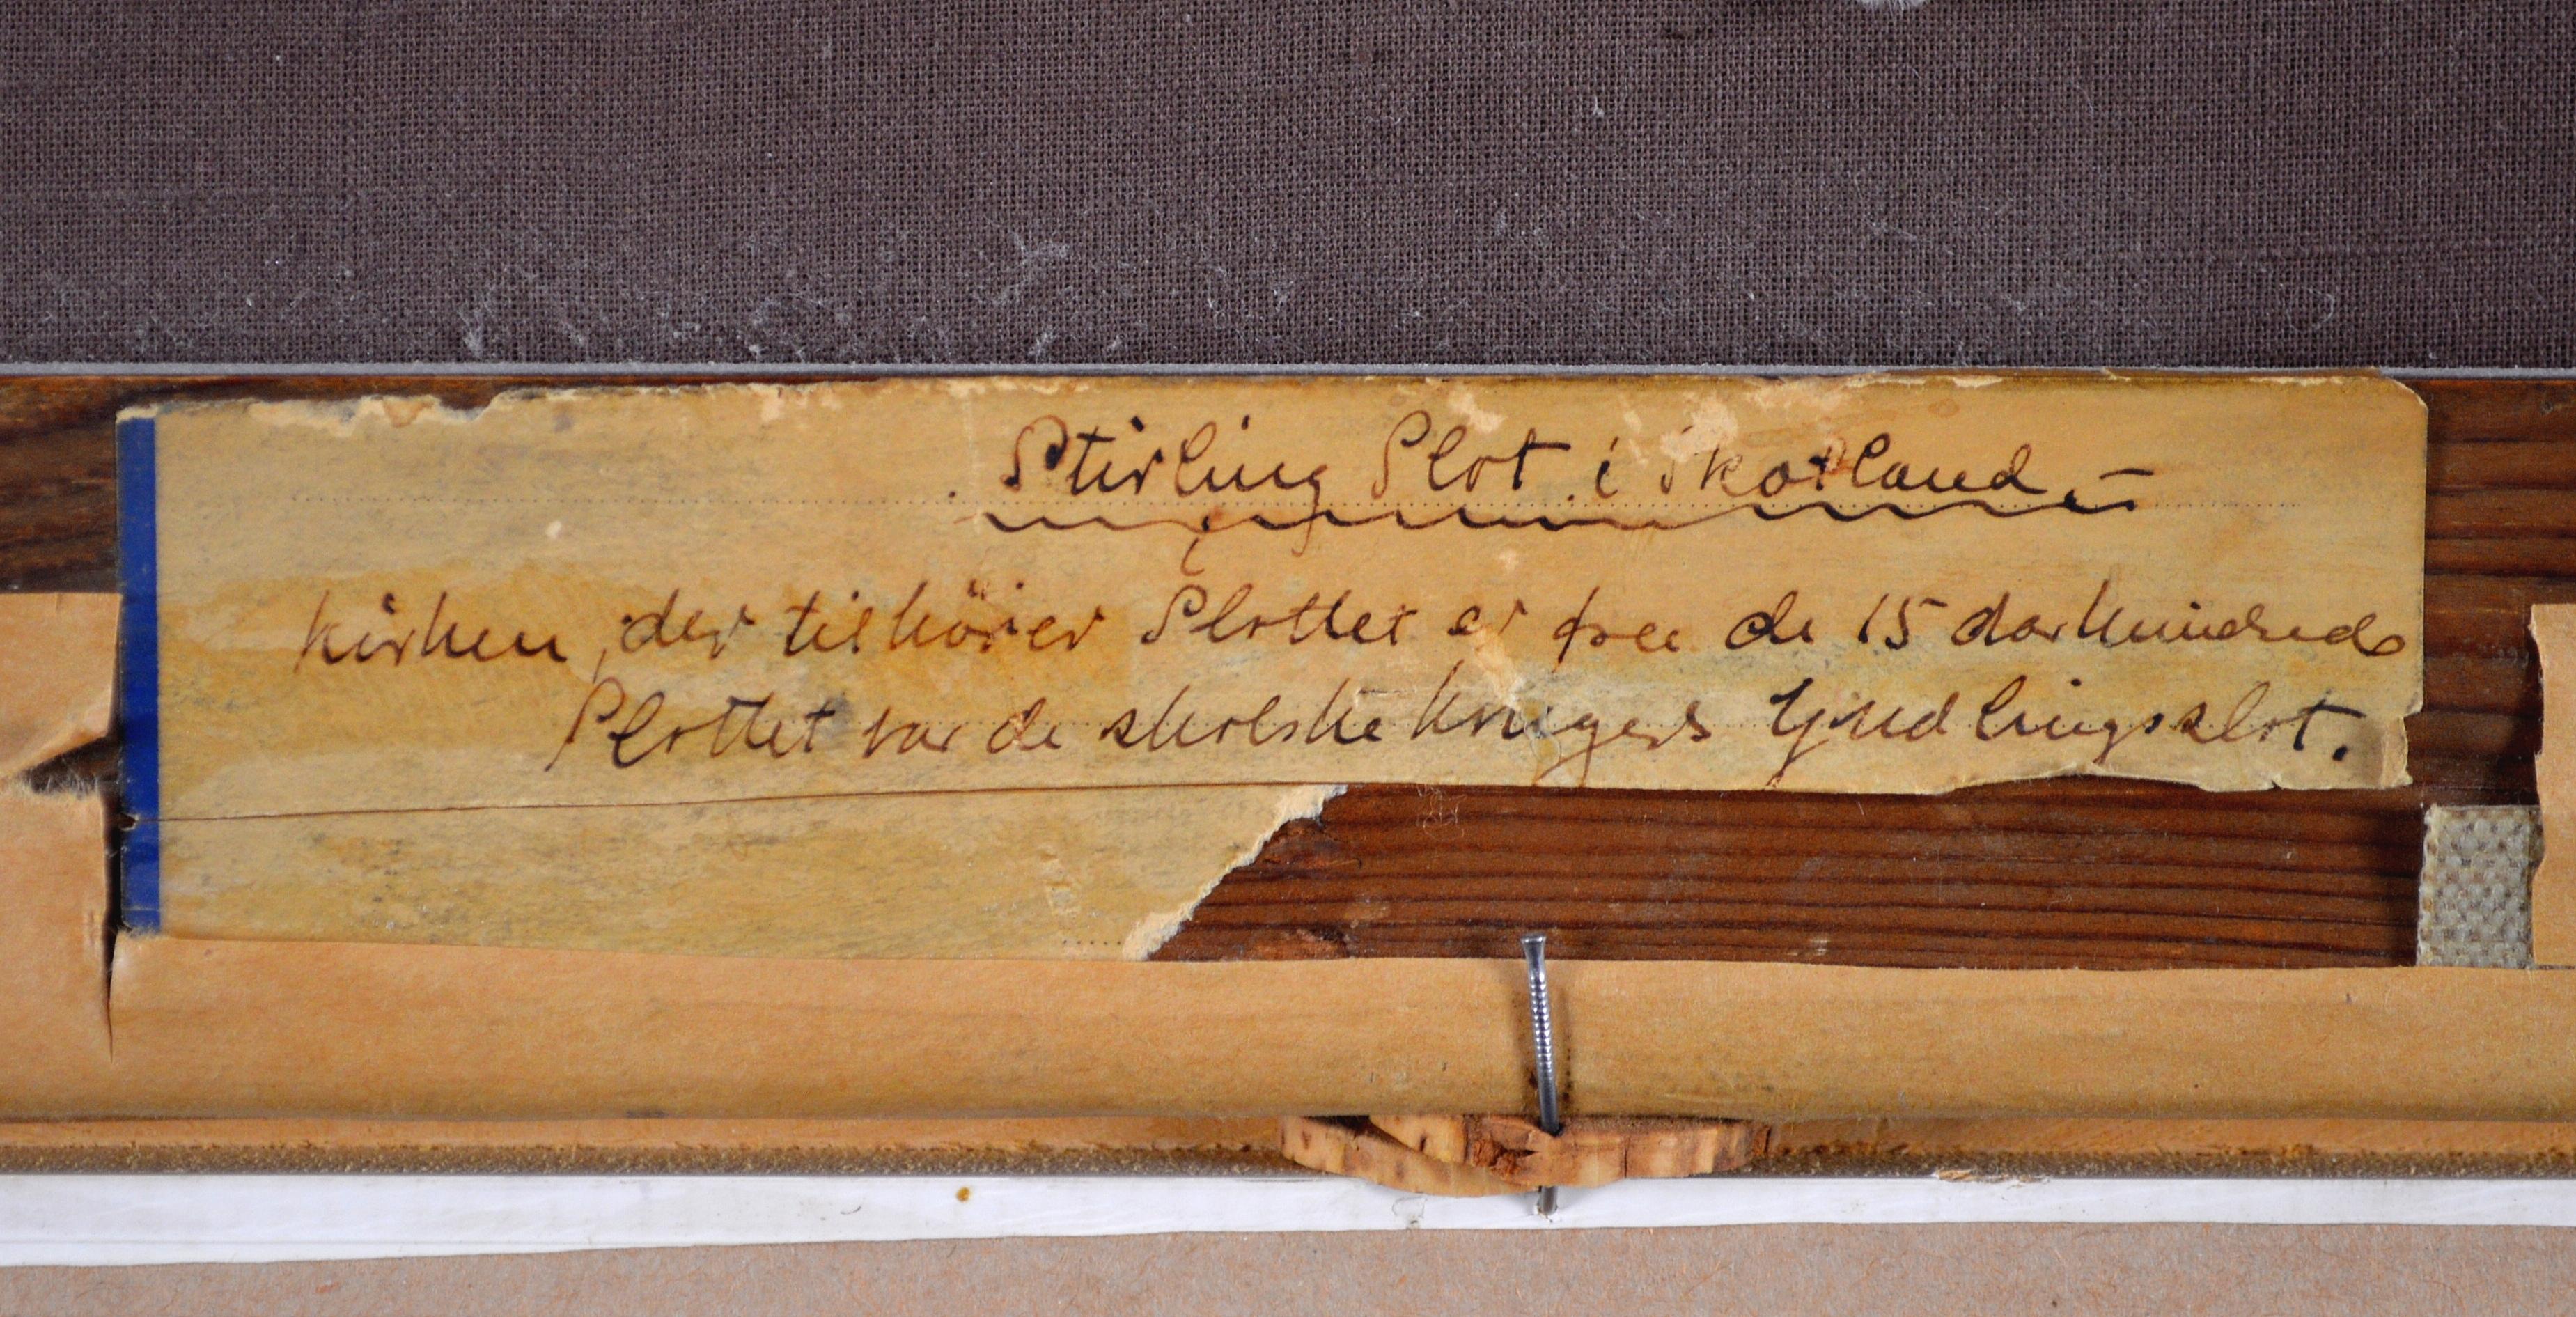 Stirling Slot i Skotland.
Kirken, der tilhörer Slottet er fra de 15 aarhundrede
Slottet var de skotske kongers Yndlingsslot.